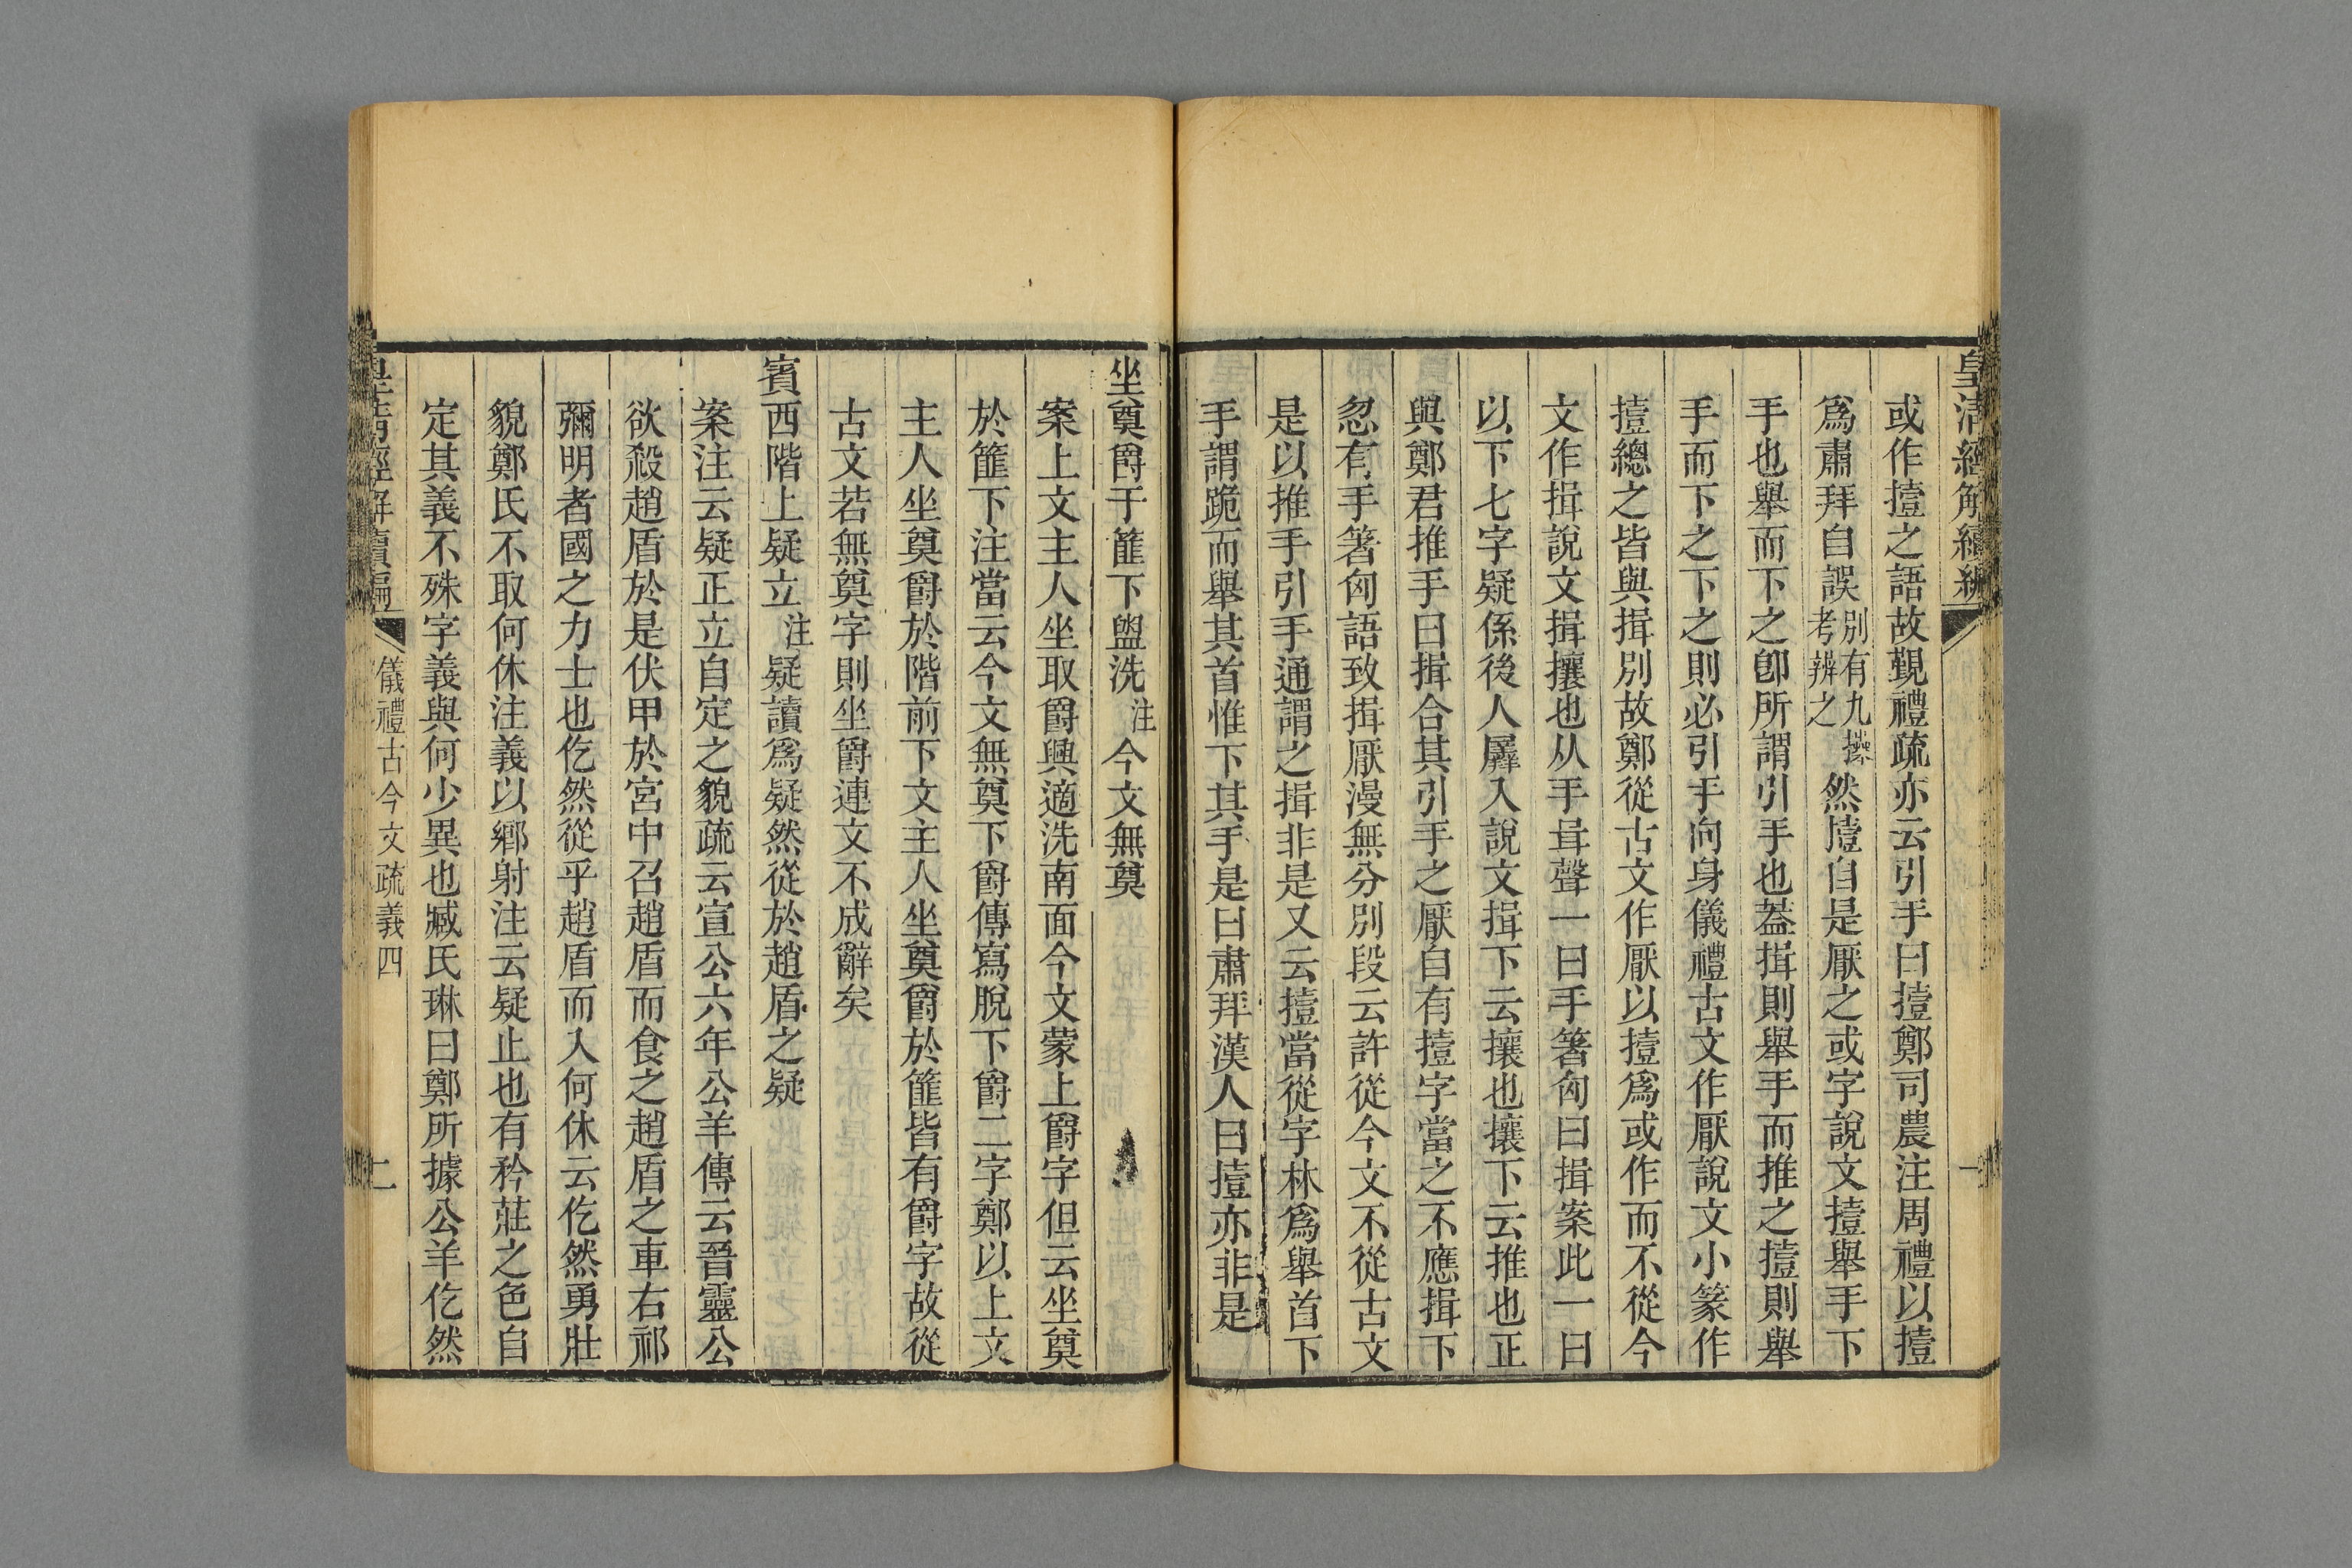 皇清經解續編
或作撎之語故覲禮疏亦云引手曰撎鄭司農注周禮以撎
爲肅拜自誤別有九𢷎考辨之然撎自是厭之或字說文撎舉手下
手也舉而下之卽所謂引手也蓋揖則舉手而推之撎則舉
手而下之下之則必引手向身儀禮古文作厭說文小篆作
撎總之皆與揖別故鄭從古文作厭以撎爲或作而不從今
文作揖說文揖攘也从手咠聲一曰手箸匈曰揖案此一曰
以下七字疑係後人羼入說文揖下云攘也攘下云推也正
與鄭君推手曰揖合其引手之厭自有撎字當之不應揖下
忽有手箸匈語致揖厭漫無分別段云許從今文不從古文
是以推手引手通謂之揖非是又云撎當從字林爲舉首下
手謂跪而舉其首惟下其手是曰肅拜漢人曰撎亦非是
坐奠爵于篚下盥洗注今文無奠
案上文主人坐取爵興適洗南面今文蒙上爵字但云坐奠
於篚下注當云今文無奠下爵傳寫脫下爵二字鄭以上文
主人坐奠爵於階前下文主人坐奠爵於篚皆有爵字故從
古文若無奠字則坐爵連文不成辭矣
賓西階上疑立注疑讀爲疑然從於趙盾之疑
案注云疑正立自定之貌疏云宣公六年公羊傳云晉靈公
欲殺趙盾於是伏甲於宮中召趙盾而食之趙盾之車右祁
彌明者國之力士也仡然從乎趙盾而入何休云仡然勇壯
貌鄭氏不取何休注義以鄉射注云疑止也有矜莊之色自
定其義不殊字義與何少異也臧氏琳曰鄭所據公羊仡然
皇清經解續編
儀禮古今文疏義四
二